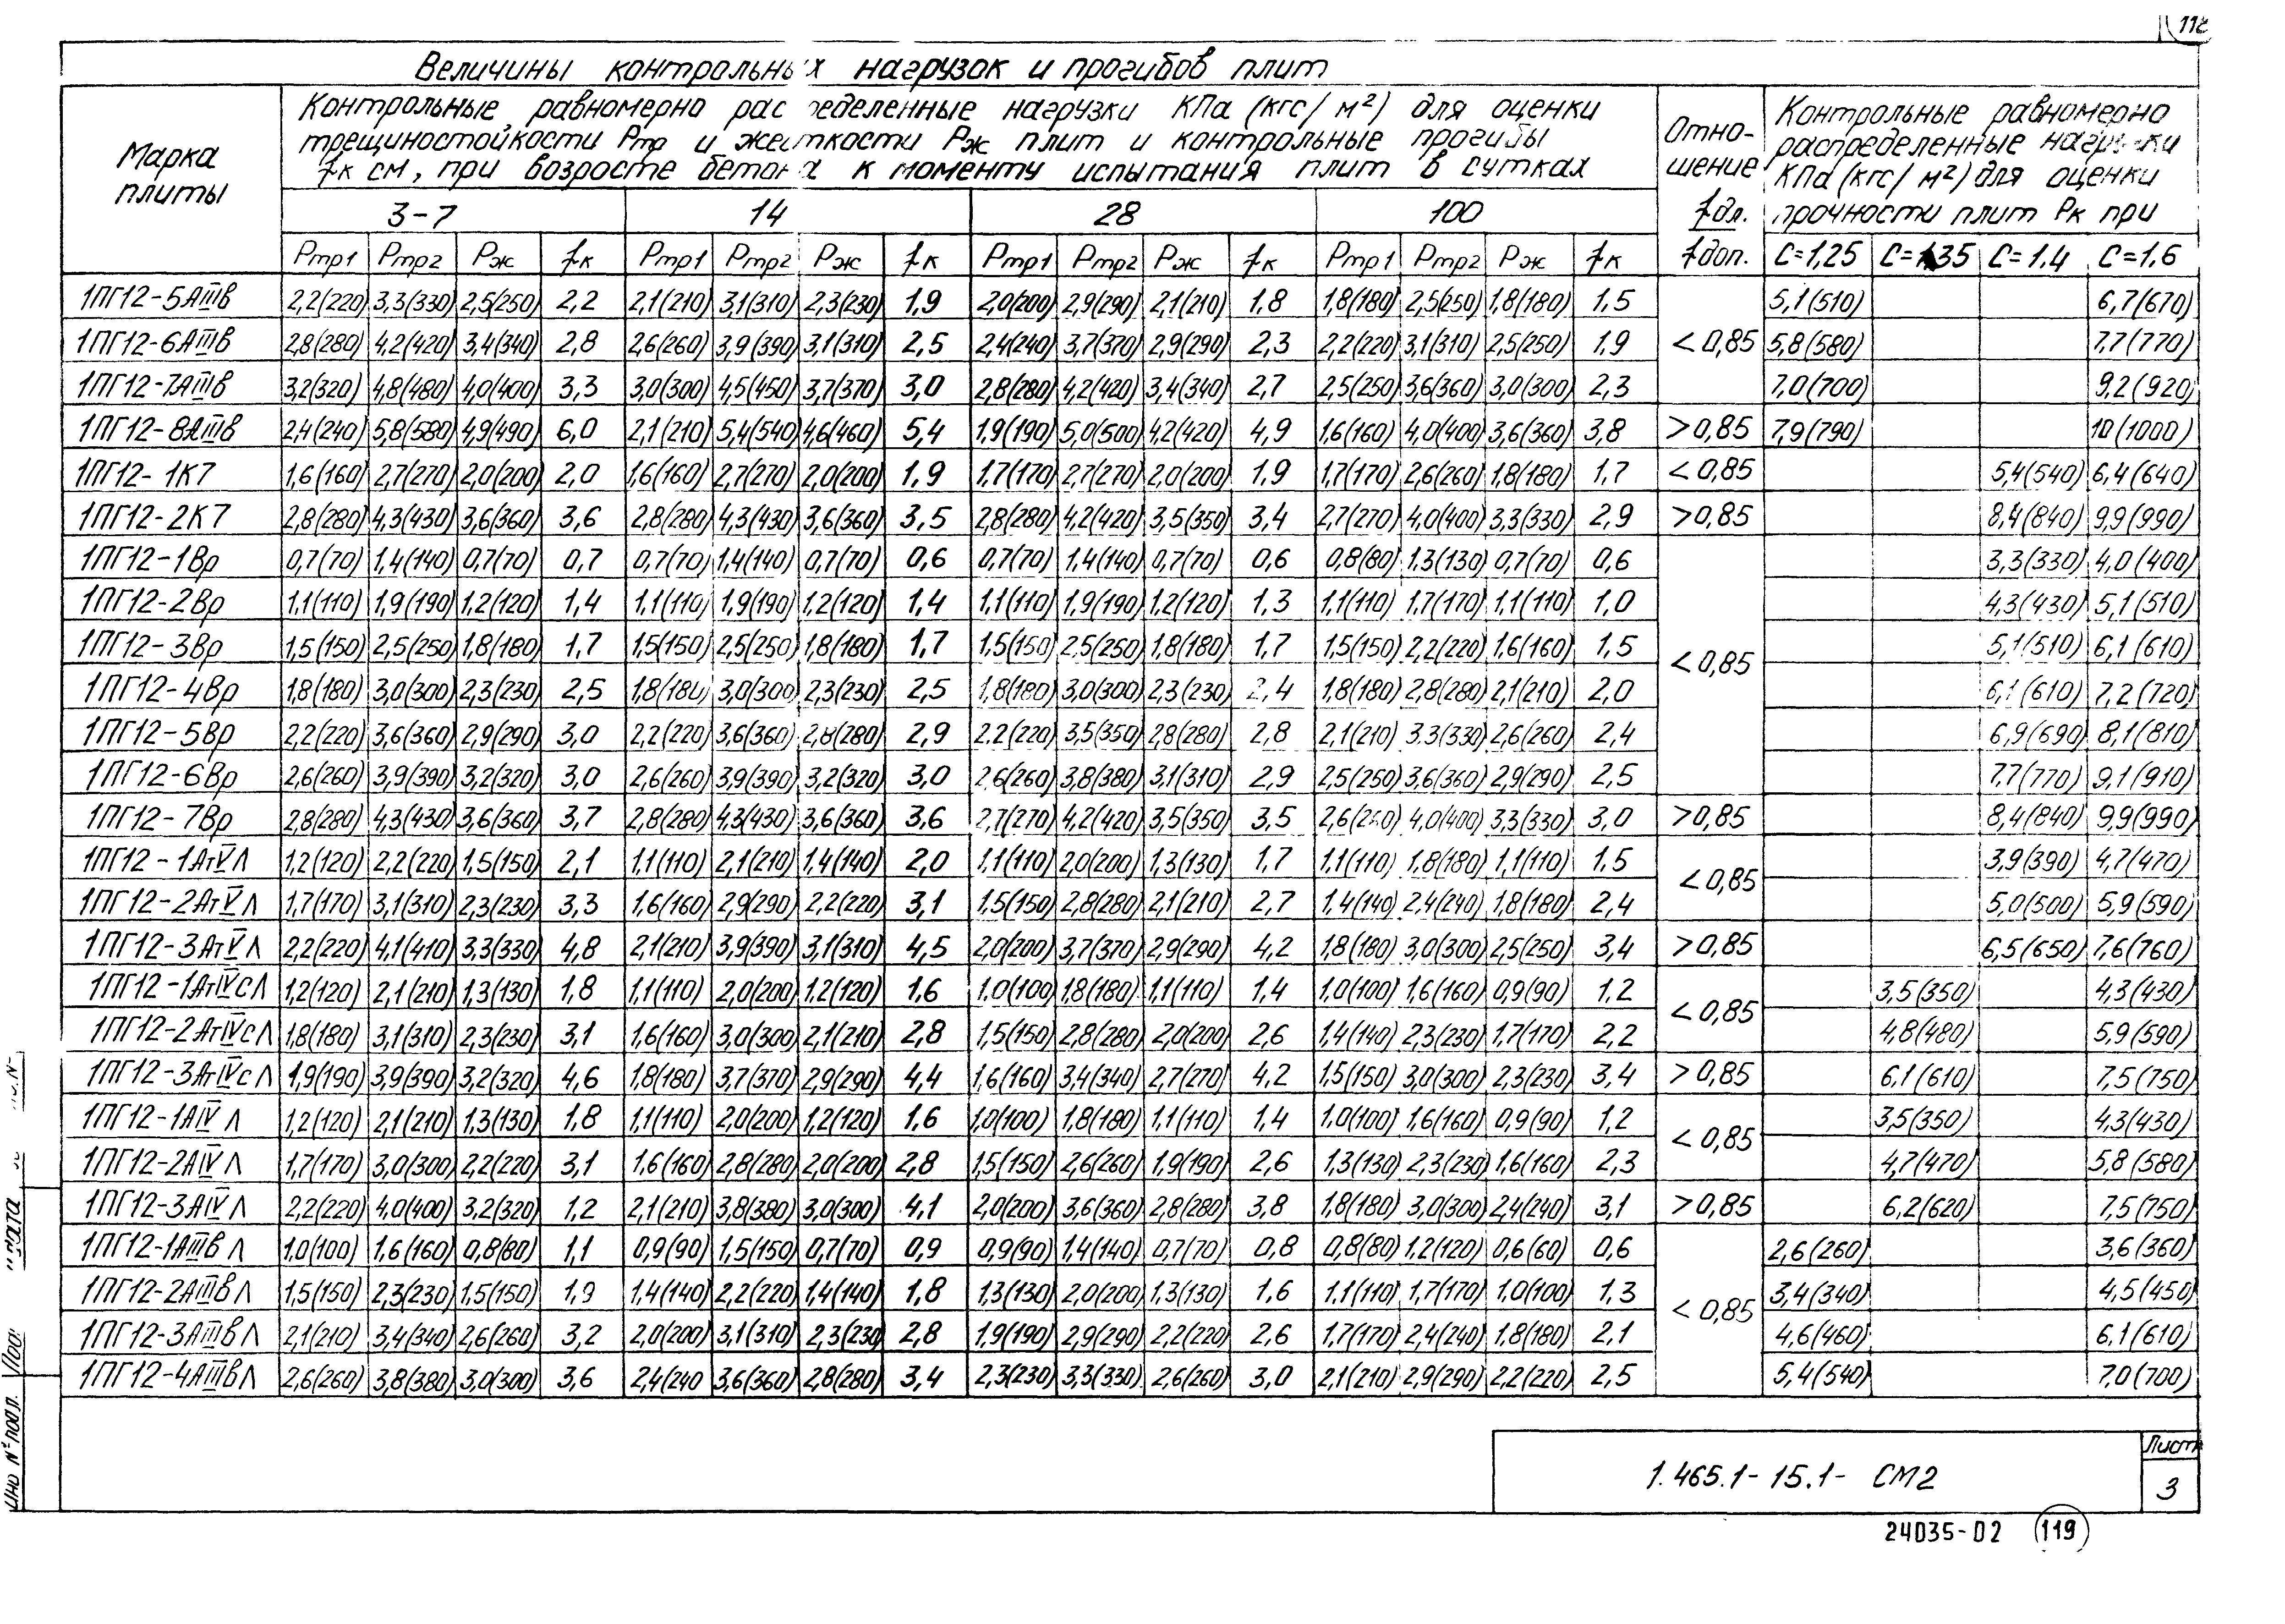 Величины контрольных нагрузок и прогибов плит
Марка плиты
Контрольные равномерно распределенные нагрузки КПа (кгс/м²) для оценки
трещиностойкости Pтр и жесткости Pж плит и контрольные прогибы
fк см, при возросте бетона к моменту испытания плит в сутках
Отно-
шение
fдл.
fдоп.
Контрольные равномерно
распределенные нагрузки
КПа (кгс/м²) для оценки
прочности плит Pк при
3-7 14 28 100
Pтр1 Pтр2 Pж fк Pтр1 Pтр2 Pж fк Pтр1 Pтр2 Pж fк Pтр1 Pтр2 Pж fк C=1,25 C=1,35 C=1,4 C=1,6
1ПГ12-5АIIIв 2,2(220) 3,3(330) 2,5(250) 2,2 2,1(210) 3,1(310) 2,3(230) 1,9 2,0(200) 2,9(290) 2,1(210) 1,8 1,8(180) 2,5(250) 1,8(180) 1,5 5,1(510) 6,7(670)
1ПГ12-6АIIIв 2,8(280) 4,2(420) 3,4(340) 2,8 2,6(260) 3,9(390) 3,1(310) 2,5 2,4(240) 3,7(370) 2,9(290) 2,3 2,2(220) 3,1(310) 2,5(250) 1,9 <0,85 5,8(580) 7,7(770)
1ПГ12-7АIIIв 3,2(320) 4,8(480) 4,0(400) 3,3 3,0(300) 4,5(450) 3,7(370) 3,0 2,8(280) 4,2(420) 3,4(340) 2,7 2,5(250) 3,6(360) 3,0(300) 2,3 7,0(700) 9,2(920)
1ПГ12-8АIIIв 2,4(240) 5,8(580) 4,9(490) 6,0 2,1(210) 5,4(540) 4,6(460) 5,4 1,9(190) 5,0(500) 4,2(420) 4,9 1,6(160) 4,0(400) 3,6(360) 3,8 >0,85 7,9(790) 10(1000)
1ПГ12-1К7 1,6(160) 2,7(270) 2,0(200) 2,0 1,6(160) 2,7(270) 2,0(200) 1,9 1,7(170) 2,7(270) 2,0(200) 1,9 1,7(170) 2,6(260) 1,8(180) 1,7 <0,85 5,4(540) 6,4(640)
1ПГ12-2К7 2,8(280) 4,3(430) 3,6(360) 3,6 2,8(280) 4,3(430) 3,6(360) 3,5 2,8(280) 4,2(420) 3,5(350) 3,4 2,7(270) 4,0(400) 3,3(330) 2,9 >0,85 8,4(840) 9,9(990)
1ПГ12-1Вр 0,7(70) 1,4(140) 0,7(70) 0,7 0,7(70) 1,4(140) 0,7(70) 0,6 0,7(70) 1,4(140) 0,7(70) 0,6 0,8(80) 1,3(130) 0,7(70) 0,6 3,3(330) 4,0(400)
1ПГ12-2Вр 1,1(110) 1,9(190) 1,2(120) 1,4 1,1(110) 1,9(190) 1,2(120) 1,4 1,1(110) 1,9(190) 1,2(120) 1,3 1,1(110) 1,7(170) 1,1(110) 1,0 4,3(430) 5,1(510)
1ПГ12-3Вр 1,5(150) 2,5(250) 1,8(180) 1,7 1,5(150) 2,5(250) 1,8(180) 1,7 1,5(150) 2,5(250) 1,8(180) 1,7 1,5(150) 2,2(220) 1,6(160) 1,5 <0,85 5,1(510) 6,1(610)
1ПГ12-4Вр 1,8(180) 3,0(300) 2,3(230) 2,5 1,8(180) 3,0(300) 2,3(230) 2,5 1,8(180) 3,0(300) 2,3(230) 2,4 1,8(180) 2,8(280) 2,1(210) 2,0 6,1(610) 7,2(720)
1ПГ12-5Вр 2,2(220) 3,6(360) 2,9(290) 3,0 2,2(220) 3,6(360) 2,8(280) 2,9 2,2(220) 3,5(350) 2,8(280) 2,8 2,1(210) 3,3(330) 2,6(260) 2,4 6,9(690) 8,1(810)
1ПГ12-6Вр 2,6(260) 3,9(390) 3,2(320) 3,0 2,6(260) 3,9(390) 3,2(320) 3,0 2,6(260) 3,8(380) 3,1(310) 2,9 2,5(250) 3,6(360) 2,9(290) 2,5 7,7(770) 9,1(910)
1ПГ12-7Вр 2,8(280) 4,3(430) 3,6(360) 3,7 2,8(280) 4,3(430) 3,6(360) 3,6 2,7(270) 4,2(420) 3,5(350) 3,5 2,6(260) 4,0(400) 3,3(330) 3,0 >0,85 8,4(840) 9,9(990)
1ПГ12-1АтVЛ 1,2(120) 2,2(220) 1,5(150) 2,1 1,1(110) 2,1(210) 1,4(140) 2,0 1,1(110) 2,0(200) 1,3(130) 1,7 1,1(110) 1,8(180) 1,1(110) 1,5 <0,85 3,9(390) 4,7(470)
1ПГ12-2АтVЛ 1,7(170) 3,1(310) 2,3(230) 3,3 1,6(160) 2,9(290) 2,2(220) 3,1 1,5(150) 2,8(280) 2,1(210) 2,7 1,4(140) 2,4(240) 1,8(180) 2,4 5,0(500) 5,9(590)
1ПГ12-3АтVЛ 2,2(220) 4,1(410) 3,3(330) 4,8 2,1(210) 3,9(390) 3,1(310) 4,5 2,0(200) 3,7(370) 2,9(290) 4,2 1,8(180) 3,0(300) 2,5(250) 3,4 >0,85 6,5(650) 7,6(760)
1ПГ12-1АтIVсЛ 1,2(120) 2,1(210) 1,3(130) 1,8 1,1(110) 2,0(200) 1,2(120) 1,6 1,0(100) 1,8(180) 1,1(110) 1,4 1,0(100) 1,6(160) 0,9(90) 1,2 <0,85 3,5(350) 4,3(430)
1ПГ12-2АтIVсЛ 1,8(180) 3,1(310) 2,3(230) 3,1 1,6(160) 3,0(300) 2,1(210) 2,8 1,5(150) 2,8(280) 2,0(200) 2,6 1,4(140) 2,3(230) 1,7(170) 2,2 4,8(480) 5,9(590)
1ПГ12-3АтIVсЛ 1,9(190) 3,9(390) 3,2(320) 4,6 1,8(180) 3,7(370) 2,9(290) 4,4 1,6(160) 3,4(340) 2,7(270) 4,2 1,5(150) 3,0(300) 2,3(230) 3,4 >0,85 6,1(610) 7,5(750)
1ПГ12-1АIVЛ 1,2(120) 2,1(210) 1,3(130) 1,8 1,1(110) 2,0(200) 1,2(120) 1,6 1,0(100) 1,8(180) 1,1(110) 1,4 1,0(100) 1,6(160) 0,9(90) 1,2 <0,85 3,5(350) 4,3(430)
1ПГ12-2АIVЛ 1,7(170) 3,0(300) 2,2(220) 3,1 1,6(160) 2,8(280) 2,0(200) 2,8 1,5(150) 2,6(260) 1,9(190) 2,6 1,3(130) 2,3(230) 1,6(160) 2,3 4,7(470) 5,8(580)
1ПГ12-3АIVЛ 2,2(220) 4,0(400) 3,2(320) 1,2 2,1(210) 3,8(380) 3,0(300) 4,1 2,0(200) 3,6(360) 2,8(280) 3,8 1,8(180) 3,0(300) 2,4(240) 3,1 >0,85 6,2(620) 7,5(750)
1ПГ12-1АIIIвЛ 1,0(100) 1,6(160) 0,8(80) 1,1 0,9(90) 1,5(150) 0,7(70) 0,9 0,9(90) 1,4(140) 0,7(70) 0,8 0,8(80) 1,2(120) 0,6(60) 0,6 2,6(260) 3,6(360)
1ПГ12-2АIIIвЛ 1,5(150) 2,3(230) 1,5(150) 1,9 1,4(140) 2,2(220) 1,4(140) 1,8 1,3(130) 2,0(200) 1,3(130) 1,6 1,1(110) 1,7(170) 1,0(100) 1,3 <0,85 3,4(340) 4,5(450)
1ПГ12-3АIIIвЛ 2,1(210) 3,4(340) 2,6(260) 3,2 2,0(200) 3,1(310) 2,3(230) 2,8 1,9(190) 2,9(290) 2,2(220) 2,6 1,7(170) 2,4(240) 1,8(180) 2,1 4,6(460) 6,1(610)
1ПГ12-4АIIIвЛ 2,6(260) 3,8(380) 3,0(300) 3,6 2,4(240 3,6(360) 2,8(280) 3,4 2,3(230) 3,3(330) 2,6(260) 3,0 2,1(210) 2,9(290) 2,2(220) 2,5 5,4(540) 7,0(700)
1.465.1-15.1- СМ2
Лист
3
24035-02 119